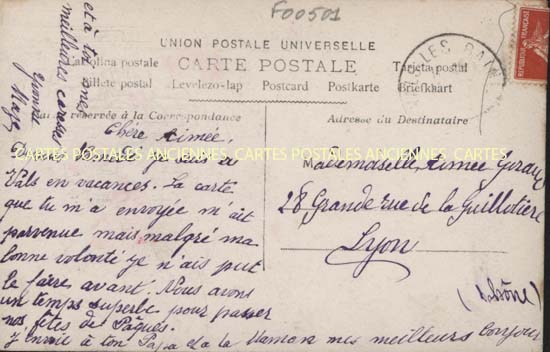 F00501
UNION POSTALE UNIVERSELLE
CARTE POSTALE
Cartolina postale
Tarjeta postal
Billete postal Levelezo-lap Postcard Postkarte Briefkhart
réservée à la Correspondance
Adresse du Destinataire
RÉPUBLIQUE FRANÇAISE
VALS LES BAINS
Chère Aimée,
je suis à
Vals en vacances. La carte
que tu m'a envoyée m'ait
parvenue mais malgré ma
bonne volonté je n'ais put
le faire avant. Nous avons
un temps superbe pour passer
nos fêtes de Pâques.
J'envoie à ton Papa et a ta Maman mes meilleurs bonjours
et à toi mes
meilleures caresses
Yvonne
Mademoiselle Aimée
28 Grande rue de la Guillotière
Lyon
(Rhône)
CARTES POSTALES ANCIENNES CARTES POSTALES ANCIENNES CARTES POSTALES ANCIENNES